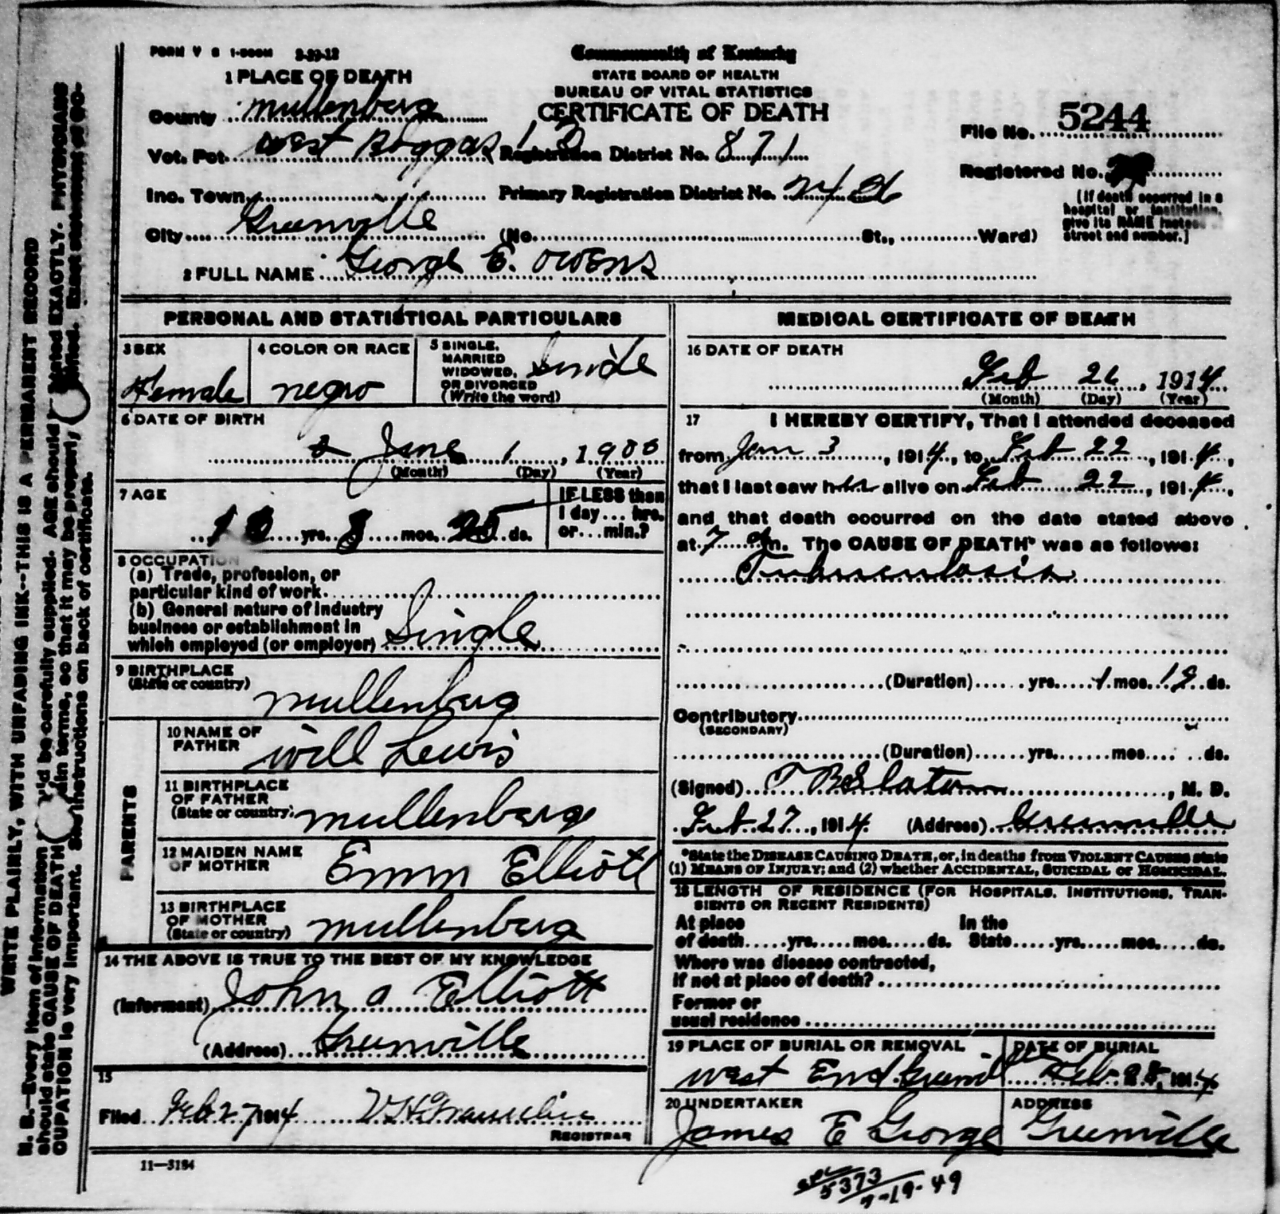 FORM V S 1-500M 3-20-12
Commonwealth of Kentucky
STATE BOARD OF HEALTH
BUREAU OF VITAL STATISTICS
CERTIFICATE OF DEATH
1 PLACE OF DEATH
County Mullenberg
Vot. Pct. West Boggas 13 Registration District No. 871
File No. 5244
Registered No.
Inc. Town Primary Registration District No. 2436
(If death occurred in a hospital or institution, give its NAME instead of street and number.)
City Greenville (No. St., Ward)
2 FULL NAME George E. Owens
PERSONAL AND STATISTICAL PARTICULARS
3 SEX Female
4 COLOR OR RACE negro
5 SINGLE, MARRIED WIDOWED, OR DIVORCED (Write the word) Single
6 DATE OF BIRTH
June 1, 1900
(Month) (Day) (Year)
7 AGE
13 yrs. 8 mos. 25 ds.
IF LESS than 1 day... hrs. or...min.?
8 OCCUPATION
(a) Trade, profession, or
particular kind of work
(b) General nature of industry
business or establishment in
which employed (or employer) Single
9 BIRTHPLACE
(State or country) Mullenberg
PARENTS
10 NAME OF FATHER Will Lewis
11 BIRTHPLACE OF FATHER (State or country) Mullenberg
12 MAIDEN NAME OF MOTHER Emm Elliott
13 BIRTHPLACE OF MOTHER (State or country) Mullenberg
14 THE ABOVE IS TRUE TO THE BEST OF MY KNOWLEDGE
(Informant) John a Elliott
(Address) Greenville
15
Filed Feb 27 1914
REGISTRAR
11—3184
MEDICAL CERTIFICATE OF DEATH
16 DATE OF DEATH
Feb 26, 1914
(Month) (Day) (Year)
17 I HEREBY CERTIFY, That I attended deceased
from Jan 3, 1914, to Feb 22, 1914,
that I last saw her alive on Feb 22, 1914,
and that death occurred on the date stated above
at 7 m. The CAUSE OF DEATH* was as follows:
Tuberculosis
(Duration) yrs. 1 mos. 19 ds.
Contributory
(SECONDARY)
(Duration) yrs. mos. ds.
(Signed) T B Slaton, M. D.
Feb 27, 1914 (Address) Greenville
*State the DISEASE CAUSING DEATH, or, in deaths from VIOLENT CAUSES state
(1) MEANS OF INJURY; and (2) whether ACCIDENTAL, SUICIDAL or HOMICIDAL.
18 LENGTH OF RESIDENCE (FOR HOSPITALS, INSTITUTIONS, TRAN-
SIENTS OR RECENT RESIDENTS)
At place of death yrs. mos. ds. In the State yrs. mos. ds.
Where was disease contracted,
if not at place of death?
Former or
usual residence
19 PLACE OF BURIAL OR REMOVAL
West End
DATE OF BURIAL
Feb 28, 1914
20 UNDERTAKER
James E George
ADDRESS
Greenville
5373
7-19-49
WRITE PLAINLY, WITH UNFADING INK—THIS IS A PERMANENT RECORD
N. B.—Every item of information should be carefully supplied. AGE should be stated EXACTLY. PHYSICIANS
should state CAUSE OF DEATH in plain terms, so that it may be properly classified. Exact statement of OC-
CUPATION is very important. See instructions on back of certificate.